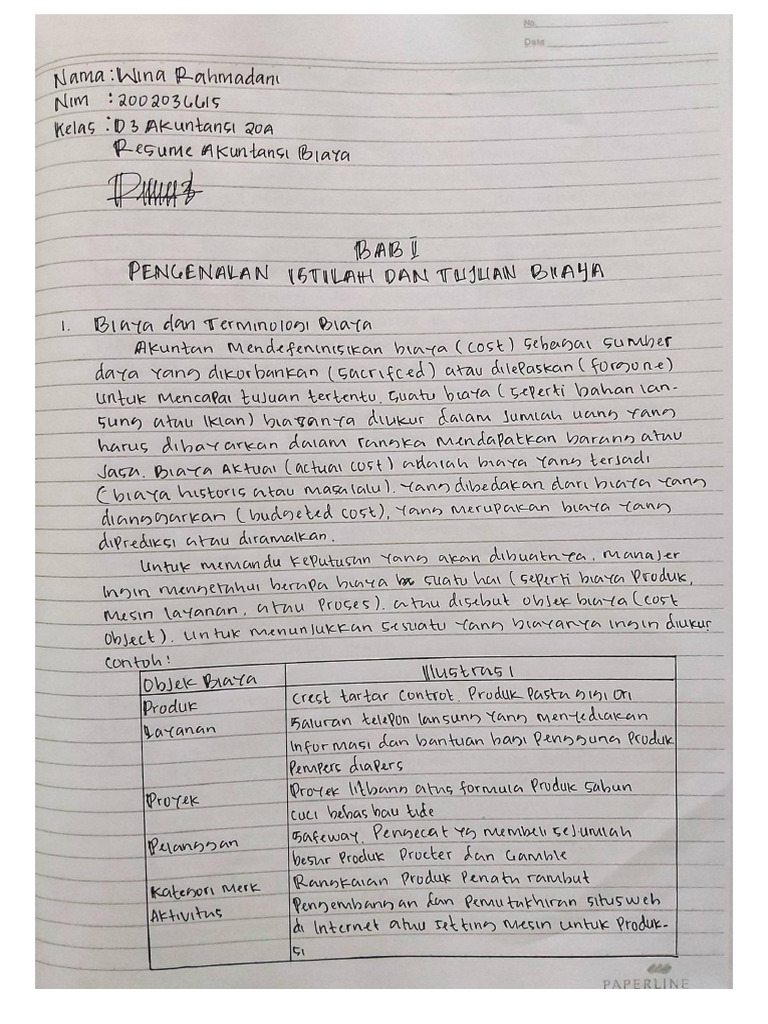 No.
Date
Nama : Wina Rahmadani
Nim : 2002036615
Kelas : D3 Akuntansi 20A
Resume Akuntansi Biaya
BAB II
PENGENALAN ISTILAH DAN TUJUAN BIIAYA
1. Biaya dan Terminologi Biaya
Akuntan Mendefeninisikan biaya (cost) sebagai sumber
daya yang dikorbankan (sacrifced) atau dilepaskan (forgone)
untuk mencapai tujuan tertentu. suatu biaya (seperti bahan lan-
sung atau Iklan) biasanya diukur dalam Jumlah uang yang
harus dibayarkan dalam rangka mendapatkan barang atau
Jasa. Biaya Aktual (actual cost) adalah biaya yang terjadi
(biaya historis atau masalalu). yang dibedakan dari biaya yang
dianggarkan (budgeted cost), yang merupakan biaya yang
diprediksi atau diramalkan.
Untuk memandu keputusan yang akan dibuatnya. manajer
Ingin mengetahui berapa biaya suatu hal (seperti biaya Produk,
Mesin layanan, atau Proses). atau disebut objek biaya (cost
object). Untuk menunjukkan sesuatu yang biayanya ingin diukur
contoh:
Objek Biaya Illustrasi
Produk Crest tartar control. Produk Pasta gigi Ori
Layanan Saluran telepon lansung yang menyediakan
Informasi dan bantuan bagi Pengguna Produk
Pempers diapers
Proyek Proyek litbang atas formula Produk sabun
cuci bebas bau tide
Pelanggan Safeway, Pengecat yg membeli sejumlah
besar Produk Procter dan Gamble
Kategori Merk Rangkaian Produk Penata rambut
Aktivitas Pengembangan dan Pemutakhiran situs web
di Internet atau setting mesin untuk Produk-
si
PAPERLINE